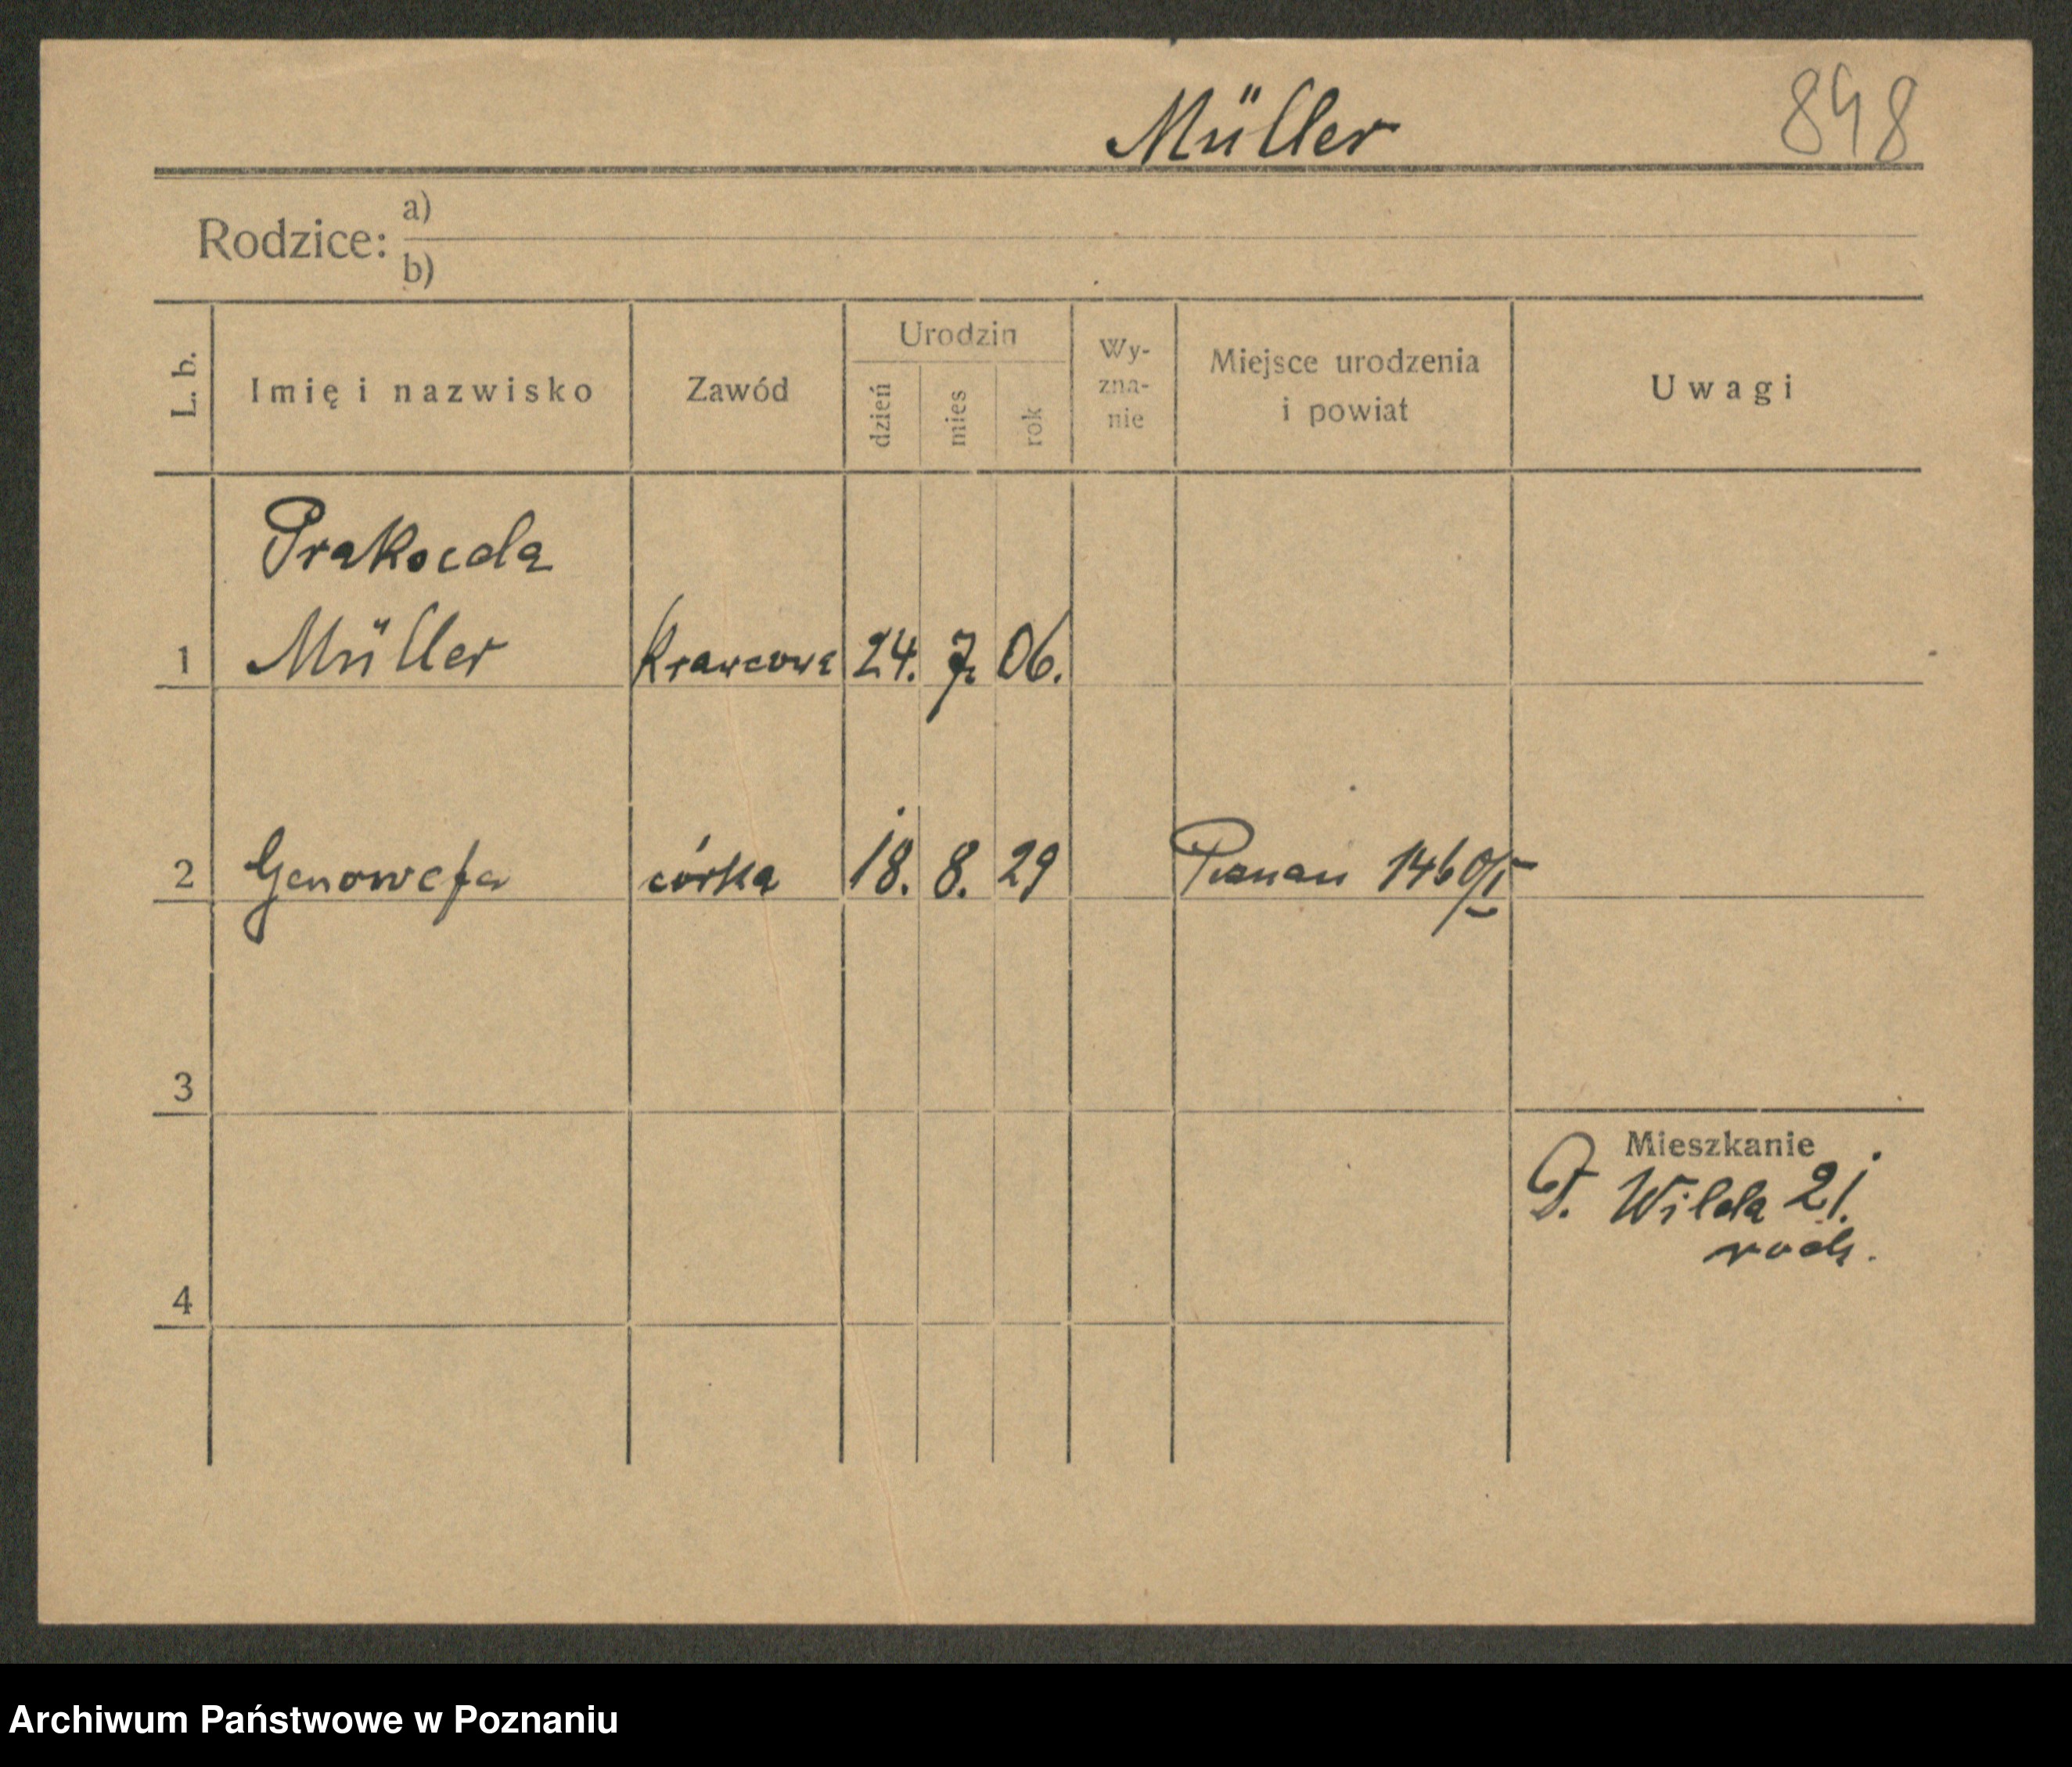 Müller 848
Rodzice: a)
b)
L. b. Imię i nazwisko Zawód Urodzin dzień mies rok Wy-zna-nie Miejsce urodzenia i powiat Uwagi
Prakseda
1 Müller Krawcowa 24. 7. 06.
2 Genowefa córka 18. 8. 29 Poznań 1460/I
3
Mieszkanie
G. Wilda 21.
4
Archiwum Państwowe w Poznaniu